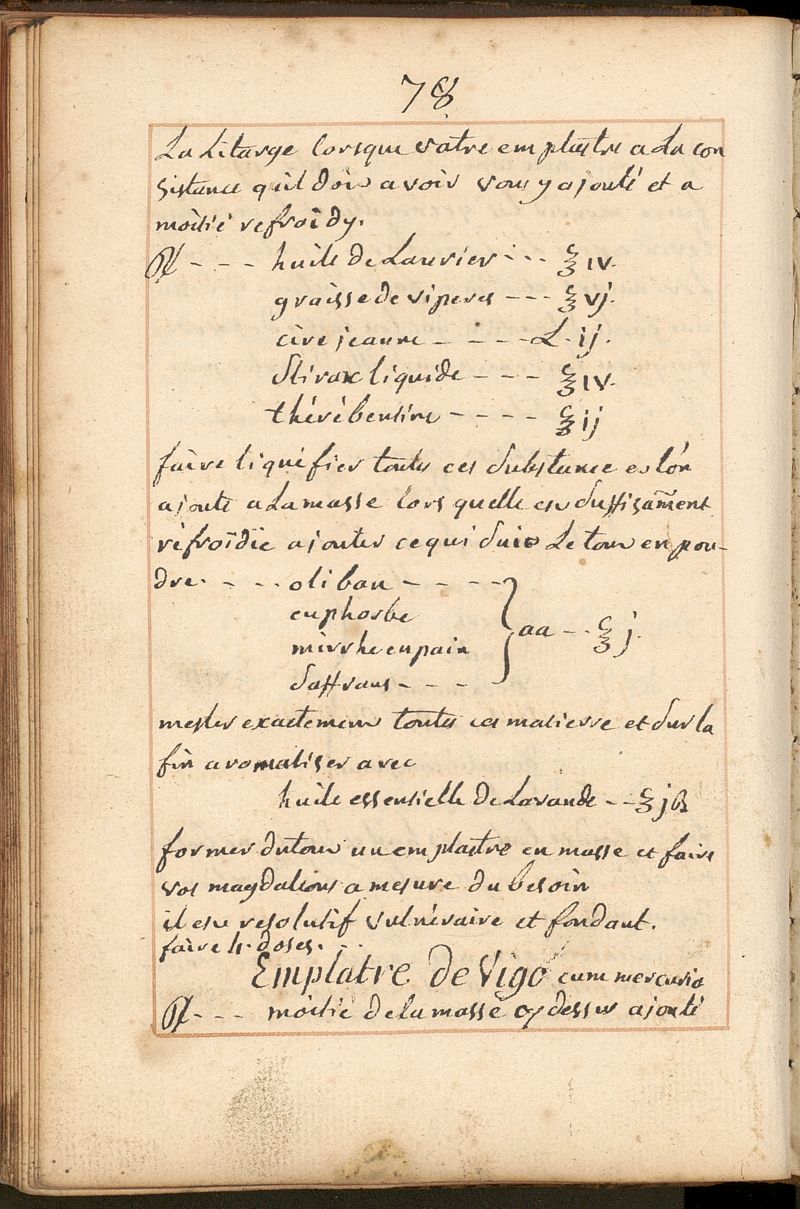 78
La Litarge lorsque votre emplastre a La con
sistance quil doit avoir vous y ajouté et a
moitié refroidy.
℞ - - - huile de Laurier - - - ℥ iv.
graisse de viperes - - - ℥ vj.
cire jeaune - - - - L. ij.
Stirax liquide - - - ℥ iv.
thérébentine - - - - ℥ ij
faire liquéfier toutes ces substance est lon
ajoute a La masse lors quelle est suffisam̄ent
réfroidie ajouter ce qui suit Le tout en pou-
dre. - - - oliban - - - -
euphorbe
mirrhe en pain } aa - - ℥ j.
saffrans - - -
mesler exactement toutes ces matierre et sur la
fin aromatiser avec
huile essentielle de Lavande - - ℥ jß
former du tout un emplastre en masse et faire
vos magdalions a mesure du besoin
il est resolutif vulnéraire et fondant.
faire 4. doses. - -
Emplatre de Vigo cum mercurio
℞ - - - moitié de la masse cy dessus ajouté